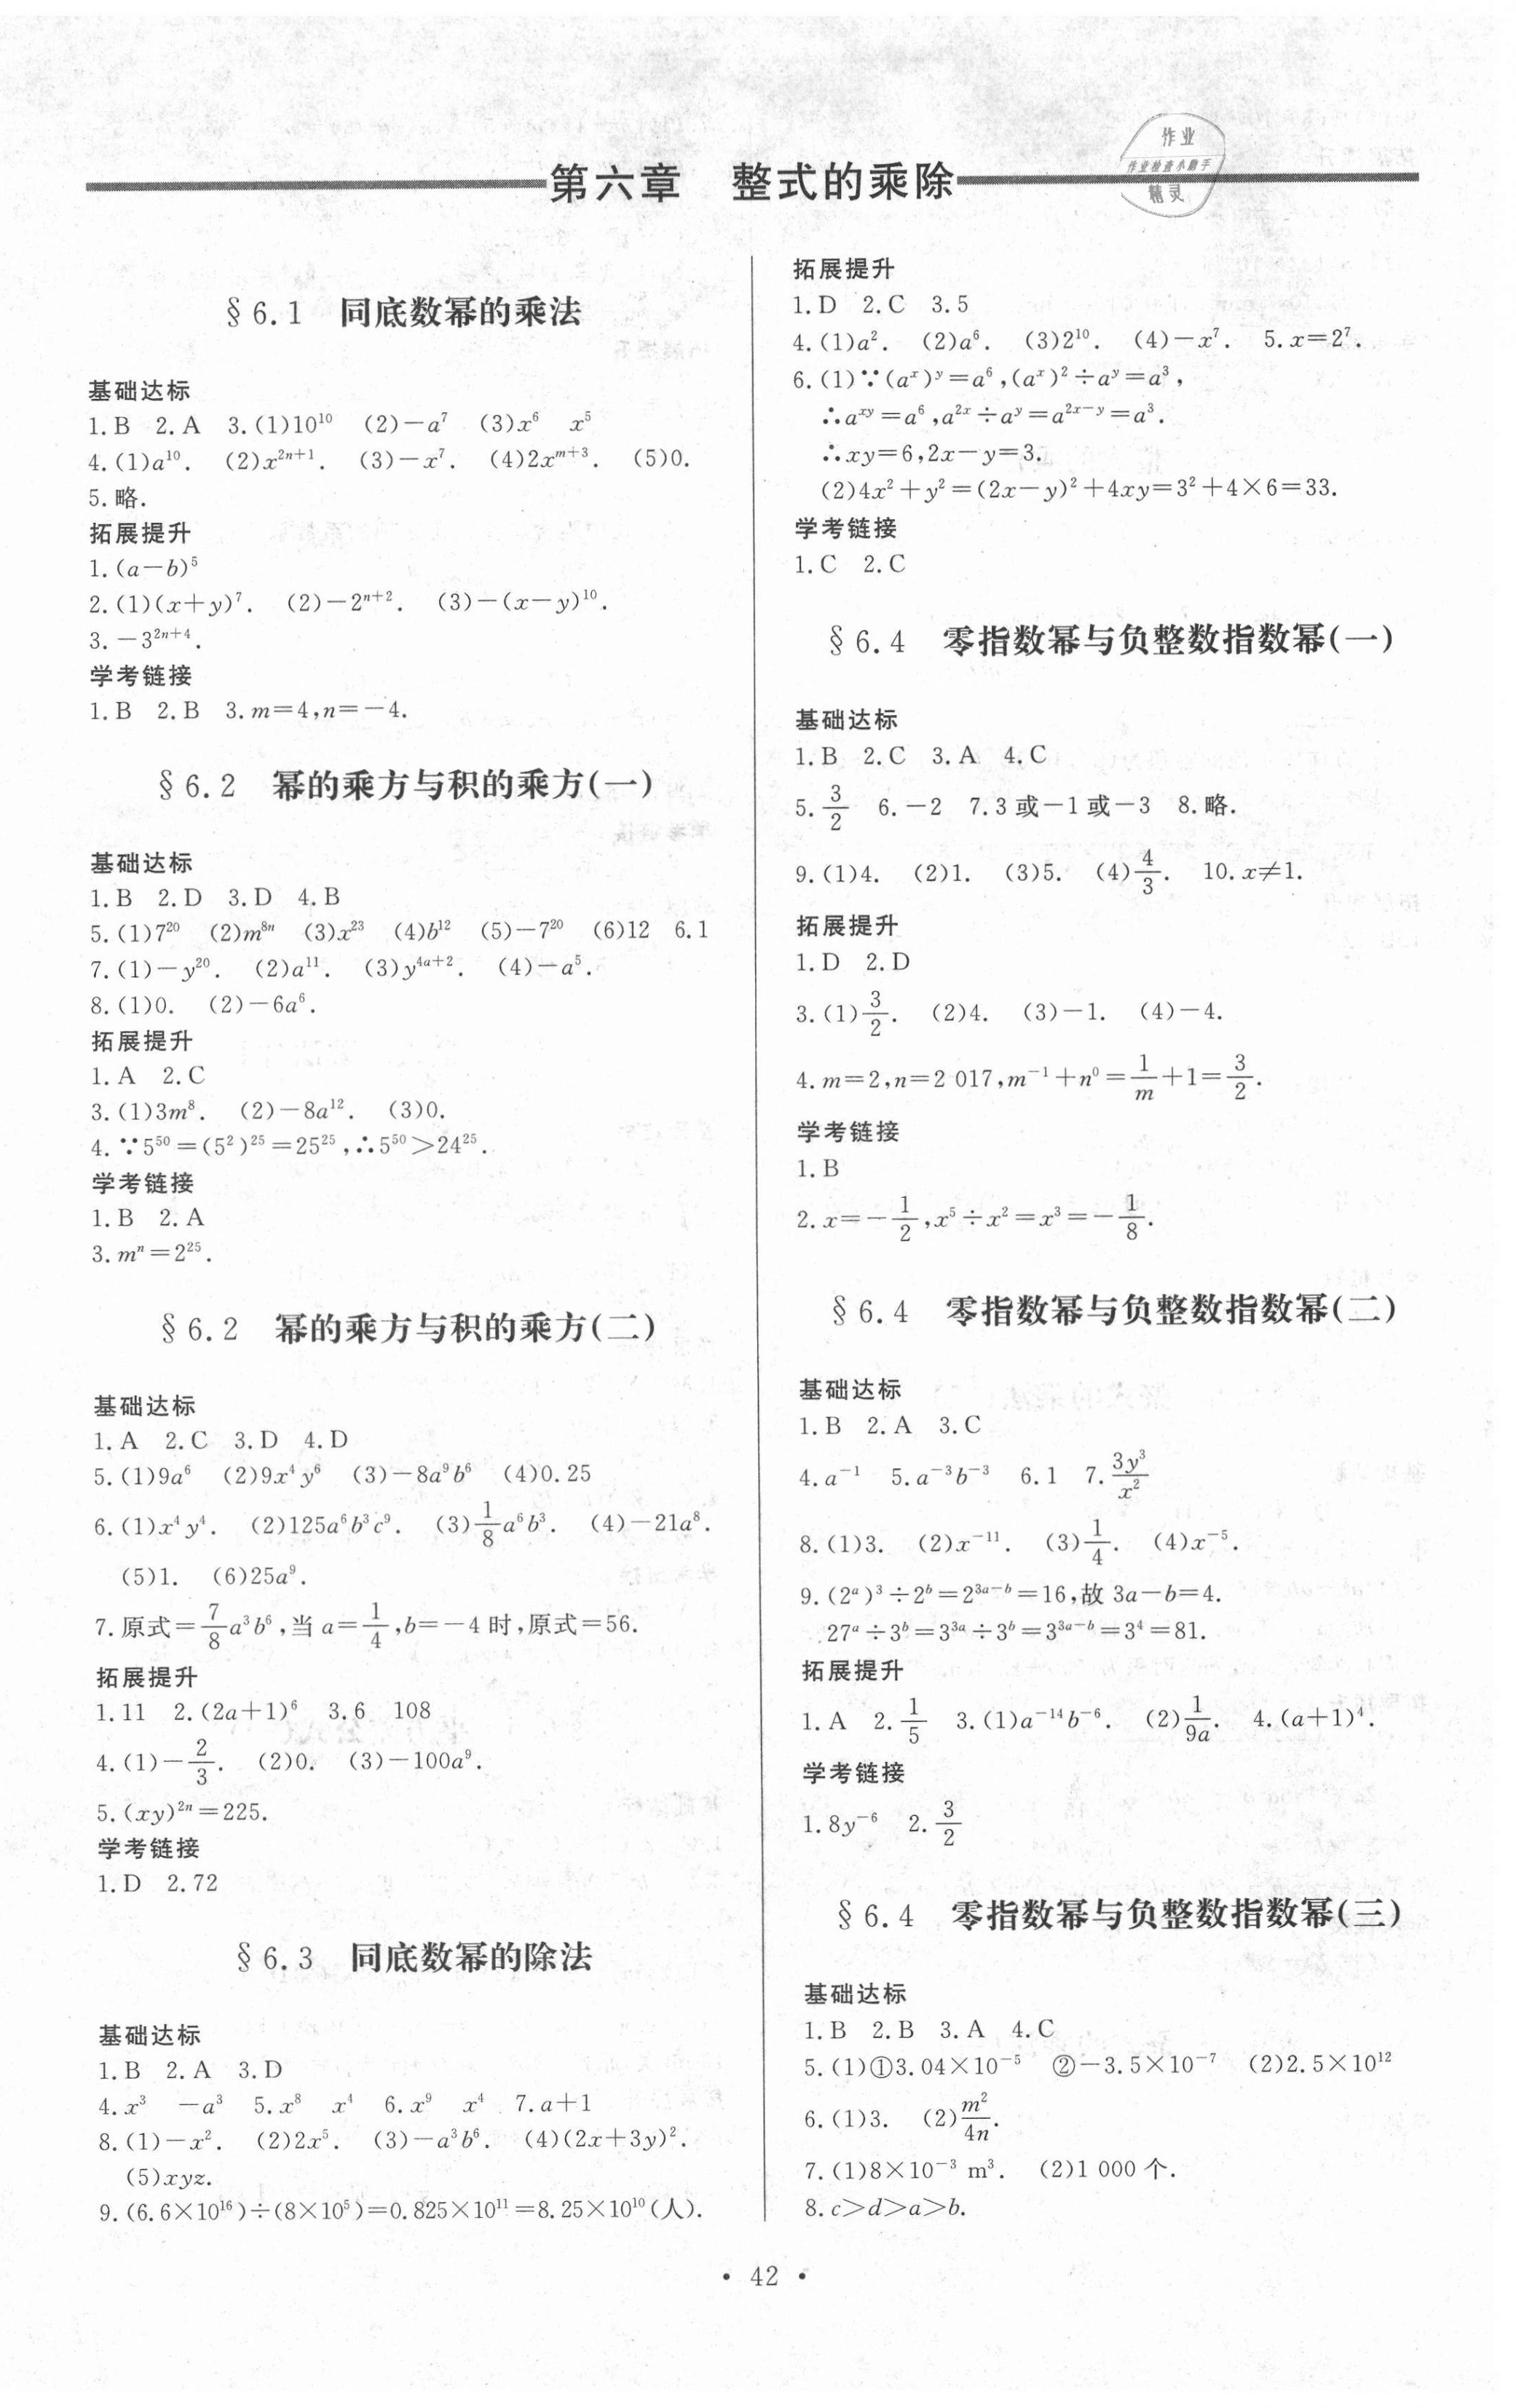 第六章　整式的乘除
作业
作业检查小助手
精灵
§6.1　同底数幂的乘法
基础达标
1.B　2.A　3.(1)10¹⁰　(2)−a⁷　(3)x⁶　x⁵
4.(1)a¹⁰.　(2)x²ⁿ⁺¹.　(3)−x⁷.　(4)2xᵐ⁺³.　(5)0.
5.略.
拓展提升
1.(a−b)⁵
2.(1)(x+y)⁷.　(2)−2ⁿ⁺².　(3)−(x−y)¹⁰.
3.−3²ⁿ⁺⁴.
学考链接
1.B　2.B　3.m=4,n=−4.
§6.2　幂的乘方与积的乘方(一)
基础达标
1.B　2.D　3.D　4.B
5.(1)7²⁰　(2)m⁸ⁿ　(3)x²³　(4)b¹²　(5)−7²⁰　(6)12　6.1
7.(1)−y²⁰.　(2)a¹¹.　(3)y⁴ᵃ⁺².　(4)−a⁵.
8.(1)0.　(2)−6a⁶.
拓展提升
1.A　2.C
3.(1)3m⁸.　(2)−8a¹².　(3)0.
4.∵5⁵⁰=(5²)²⁵=25²⁵,∴5⁵⁰>24²⁵.
学考链接
1.B　2.A
3.mⁿ=2²⁵.
§6.2　幂的乘方与积的乘方(二)
基础达标
1.A　2.C　3.D　4.D
5.(1)9a⁶　(2)9x⁴y⁶　(3)−8a⁹b⁶　(4)0.25
6.(1)x⁴y⁴.　(2)125a⁶b³c⁹.　(3)1/8a⁶b³.　(4)−21a⁸.
(5)1.　(6)25a⁹.
7.原式=7/8a³b⁶,当a=1/4,b=−4时,原式=56.
拓展提升
1.11　2.(2a+1)⁶　3.6　108
4.(1)−2/3.　(2)0.　(3)−100a⁹.
5.(xy)²ⁿ=225.
学考链接
1.D　2.72
§6.3　同底数幂的除法
基础达标
1.B　2.A　3.D
4.x³　−a³　5.x⁸　x⁴　6.x⁹　x⁴　7.a+1
8.(1)−x².　(2)2x⁵.　(3)−a³b⁶.　(4)(2x+3y)².
(5)xyz.
9.(6.6×10¹⁶)÷(8×10⁵)=0.825×10¹¹=8.25×10¹⁰(人).
拓展提升
1.D　2.C　3.5
4.(1)a².　(2)a⁶.　(3)2¹⁰.　(4)−x⁷.　5.x=2⁷.
6.(1)∵(aˣ)ʸ=a⁶,(aˣ)²÷aʸ=a³,
∴aˣʸ=a⁶,a²ˣ÷aʸ=a²ˣ⁻ʸ=a³.
∴xy=6,2x−y=3.
(2)4x²+y²=(2x−y)²+4xy=3²+4×6=33.
学考链接
1.C　2.C
§6.4　零指数幂与负整数指数幂(一)
基础达标
1.B　2.C　3.A　4.C
5.3/2　6.−2　7.3或−1或−3　8.略.
9.(1)4.　(2)1.　(3)5.　(4)4/3.　10.x≠1.
拓展提升
1.D　2.D
3.(1)3/2.　(2)4.　(3)−1.　(4)−4.
4.m=2,n=2 017,m⁻¹+n⁰=1/m+1=3/2.
学考链接
1.B
2.x=−1/2,x⁵÷x²=x³=−1/8.
§6.4　零指数幂与负整数指数幂(二)
基础达标
1.B　2.A　3.C
4.a⁻¹　5.a⁻³b⁻³　6.1　7.3y³/x²
8.(1)3.　(2)x⁻¹¹.　(3)1/4.　(4)x⁻⁵.
9.(2ᵃ)³÷2ᵇ=2³ᵃ⁻ᵇ=16,故3a−b=4.
27ᵃ÷3ᵇ=3³ᵃ÷3ᵇ=3³ᵃ⁻ᵇ=3⁴=81.
拓展提升
1.A　2.1/5　3.(1)a⁻¹⁴b⁻⁶.　(2)1/9a.　4.(a+1)⁴.
学考链接
1.8y⁻⁶　2.3/2
§6.4　零指数幂与负整数指数幂(三)
基础达标
1.B　2.B　3.A　4.C
5.(1)①3.04×10⁻⁵　②−3.5×10⁻⁷　(2)2.5×10¹²
6.(1)3.　(2)m²/4n.
7.(1)8×10⁻³ m³.　(2)1 000个.
8.c>d>a>b.
• 42 •